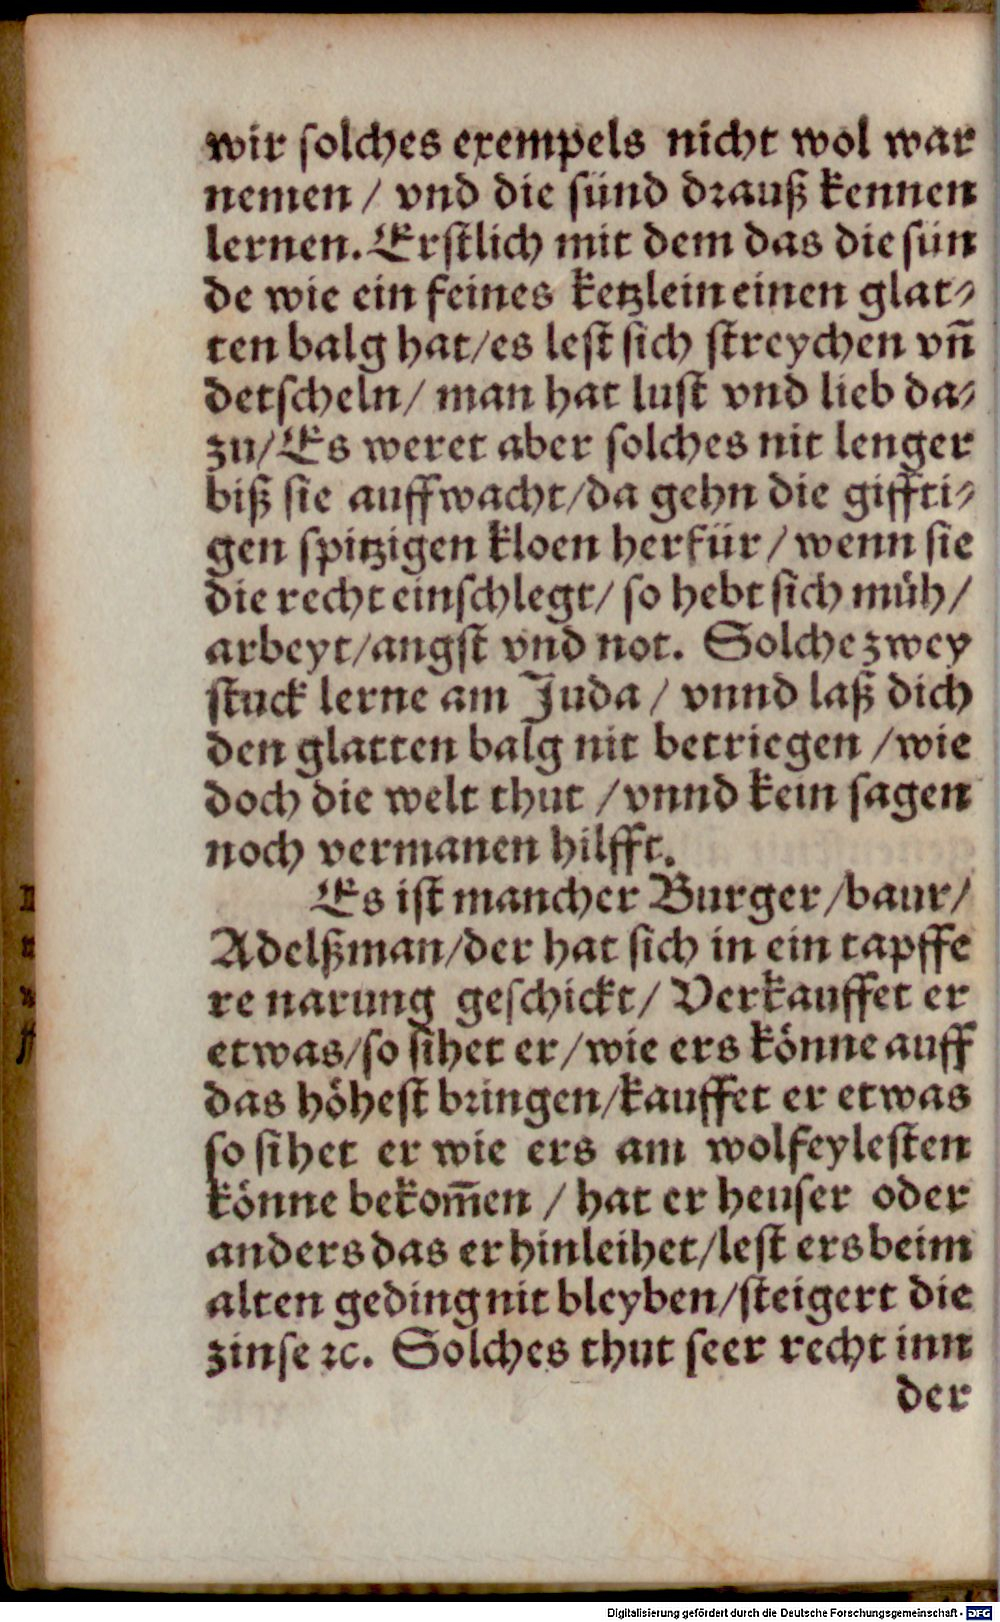 wir solches exempels nicht wol war
nemen / vnd die sünd drauß kennen
lernen. Erstlich mit dem das die sün
de wie ein feines ketzlein einen glat⸗
ten balg hat/es lest sich streychen vn̄
detscheln/ man hat lust vnd lieb da⸗
zu/Es weret aber solches nit lenger
biß sie auffwacht/da gehn die giffti⸗
gen spitzigen kloen herfür / wenn sie
die recht einschlegt/ so hebt sich müh/
arbeyt/angst vnd not. Solche zwey
stuck lerne am Juda / vnnd laß dich
den glatten balg nit betriegen /wie
doch die welt thut /vnnd kein sagen
noch vermanen hilfft.
Es ist mancher Burger /baur/
Adelßman/der hat sich in ein tapffe
re narung geschickt/ Verkauffet er
etwas/so sihet er/wie ers könne auff
das höhest bringen/kauffet er etwas
so sihet er wie ers am wolfeylesten
könne bekom̄en / hat er heuser oder
anders das er hinleihet/lest ers beim
alten geding nit bleyben/steigert die
zinse ꝛc. Solches thut seer recht inn
der
Digitalisierung gefördert durch die Deutsche Forschungsgemeinschaft - DFG